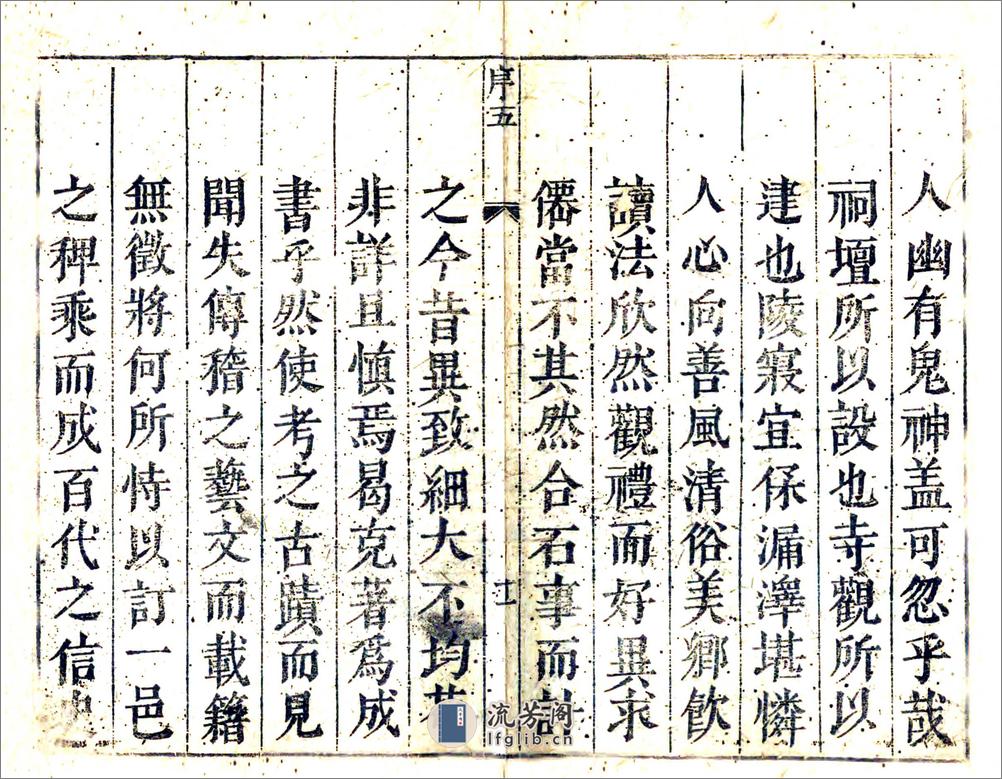 人幽有鬼神盖可忽乎哉
祠壇所以設也寺觀所以
建也陵寢宜保漏澤堪憐
人心向善風清俗美鄉飲
讀法欣然觀禮而好異求
僊當不其然合石事而計
序五
之今昔異致細大不均苟
非詳且慎焉曷克著為成
書乎然使考之古蹟而見
聞失傳稽之藝文而載籍
無徵將何所恃以訂一邑
之稗乘而成百代之信史
流芳阁
lfglib.cn